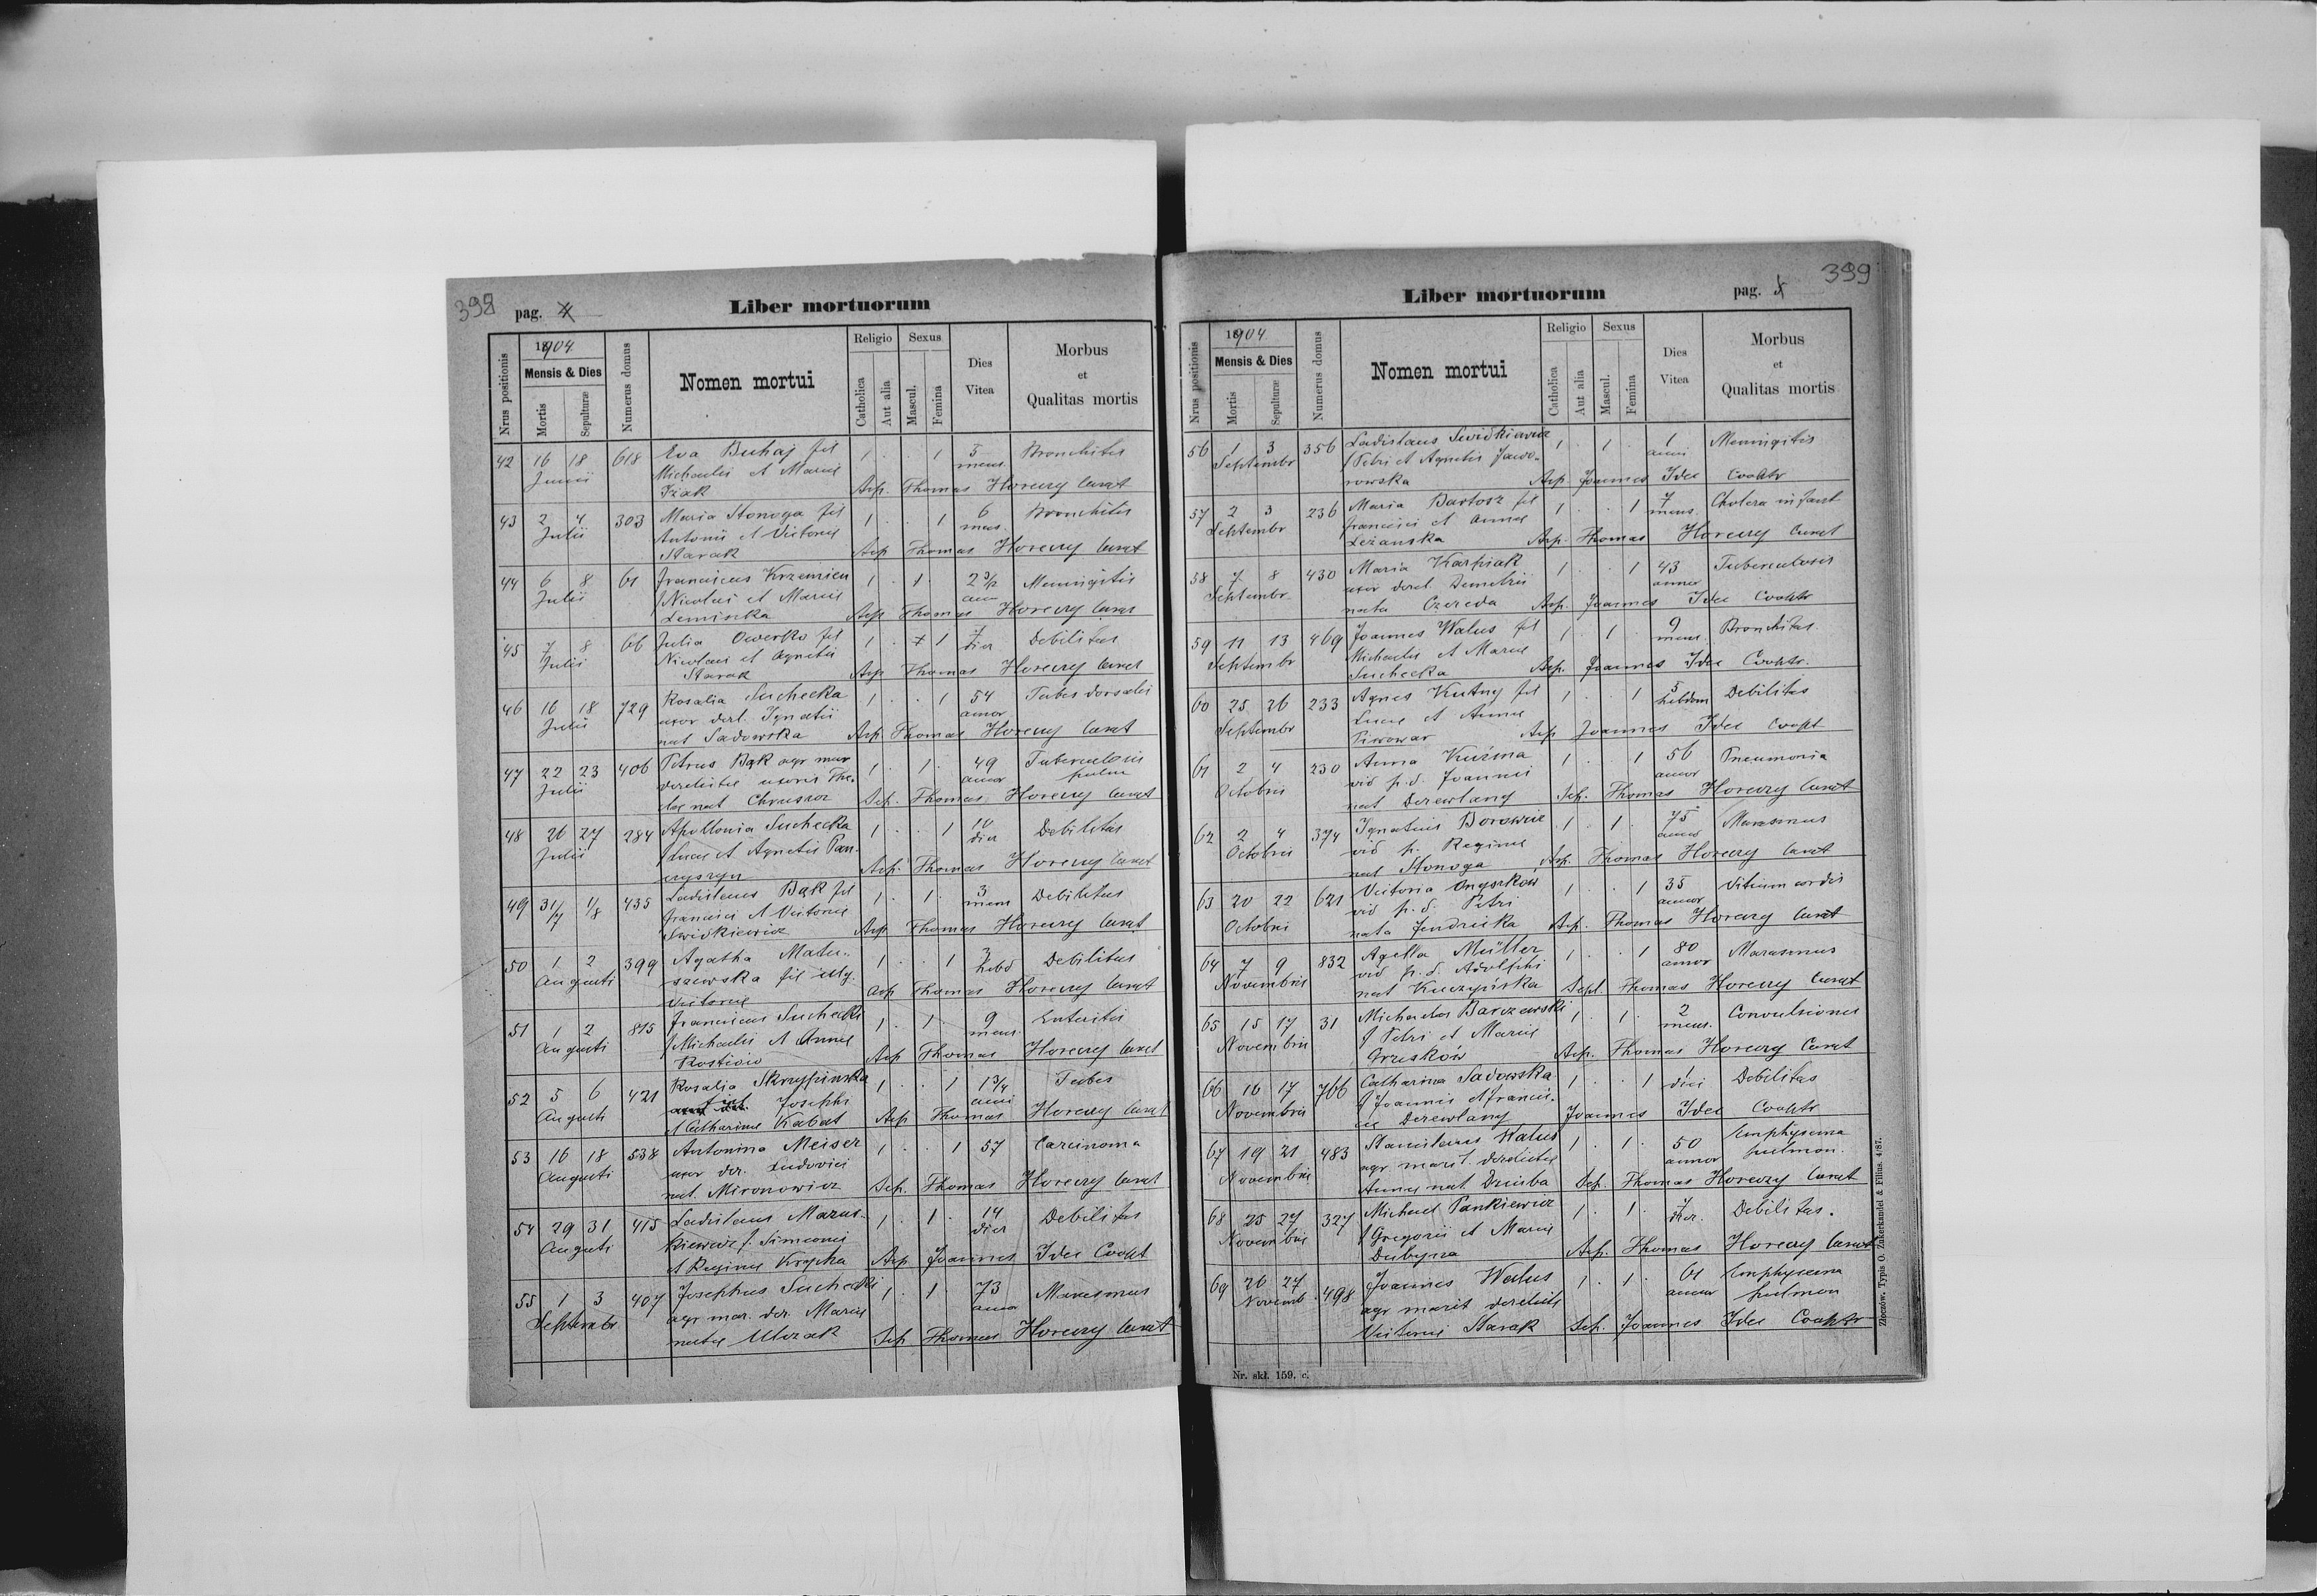 398 pag. 4
Liber mortuorum
Nrus positionis
1904
Mensis & Dies
Mortis
Sepulturæ
Numerus domus
Nomen mortui
Religio
Catholica
Aut alia
Sexus
Mascul.
Femina
Dies Vitea
Morbus et Qualitas mortis
42 16 18 618 Eva Buhaj fil 1 . . 1 5 Bronchitis
Junii Michaelis et Mariae mens.
Izak Asp. Thomas Horeczy Curat
43 2 4 303 Maria Stonoga fil 1 . . 1 6 Bronchitis
Julii Antonii et Victoriae mens.
Starak Asp Thomas Horeczy Curat
44 6 8 61 Franciscus Krzemien 1 . 1 . 2 Meningitis
Julii f Nicolai et Mariae
Asp Thomas Horeczy Curat
45 7 8 66 Julia Owerko fil 1 . 1 7 Debilitas
Julii Nicolai et Agnetis dier
Starak Asp Thomas Horeczy Curat
46 16 18 729 Rosalia Suchecka 1 . . 1 54 Tabes dorsalis
Julii uxor derel. Ignatii annor
nat Sadowska Asp. Thomas Horeczy Curat
47 22 23 406 Petrus Bąk agr mar 1 . 1 . 49 Tuberculosis
Julii derelictae uxoris The- annor pulm
clae nat Chruszcz Sep. Thomas Horeczy Curat
48 26 27 284 Apollonia Suchecka 1 . . 1 10 Debilitas
Julii f Lucae et Agnetis Pan- dier
czyszyn Asp. Thomas Horeczy Curat
49 31/7 1/8 435 Ladislaus Bąk fil 1 . 1 . 3 Debilitas
Francisci et Victoriae mens
Swidkiewicz Asp Thomas Horeczy Curat
50 1 2 399 Agatha Matu- 1 . . 1 3 Debilitas
Augusti szewska fil illg. hebd
Victoriae Asp Thomas Horeczy Curat
51 1 2 815 Franciscus Suchecki 1 . 1 . 9 Enteritis
Augusti f Michaelis et Annae mens.
Kostiów Asp Thomas Horeczy Curat
52 5 6 421 Rosalia Skrzypinska 1 . . 1 1 3/4 Tabes
Augusti fil Josephi anni
et Catharinae Kabat Asp Thomas Horeczy Curat
53 16 18 538 Antonina Meiser 1 . . 1 57 Carcinoma
Augusti uxor der. Ludovici
nat. Mironowicz Sep. Thomas Horeczy Curat
54 29 31 415 Ladislaus Marus- 1 . 1 . 14 Debilitas
Augusti kiewicz f. Simeonis dier
et Reginae Krypka Asp Joannes Idec Coopt
55 1 3 407 Josephus Suchecki 1 . 1 . 73 Marasmus
Septembr agr mar. der. Mariae annor
natae Ulczak Sep Thomas Horeczy Curat
Liber mortuorum
pag. 5 399
Nrus positionis
1904
Mensis & Dies
Mortis
Sepulturæ
Numerus domus
Nomen mortui
Religio
Catholica
Aut alia
Sexus
Mascul.
Femina
Dies Vitea
Morbus et Qualitas mortis
56 1 3 356 Ladislaus Swidkiewicz 1 . 1 . 1 Meningitis
Septembr f Petri et Agnetis Jawo- anni
rowska Asp. Joannes Idec Cooptr
57 2 3 236 Maria Bartosz fil 1 . . 1 7 Cholera infant
Septembr Francisci et Annae mens.
Leżanska Asp. Thomas Horeczy Curat
58 7 8 430 Maria Karpiak 1 . . 1 43 Tuberculosis
Septembr uxor derel. Demetrii annor
nata Czereda Asp. Joannes Idec Cooptr
59 11 13 469 Joannes Walus fil 1 . 1 . 9 Bronchitas.
Septembr Michaelis et Mariae mens.
Suchecka Asp. Joannes Idec Cooptr.
60 25 26 233 Agnes Kutny fil 1 . . 1 5 Debilitas
Septembr Lucae et Annae hebdom
Piwowar Asp Joannes Idec Coopt
61 2 4 230 Anna Kuźma 1 . . 1 56 Pneumonia
Octobris vid p.d. Joannis annor
nat Derewlany Sep. Thomas Horeczy Curat
62 2 4 374 Ignatius Borowiec 1 . 1 . 75 Marasmus
Octobris vid p. Reginae annor
nat Stonoga Asp. Thomas Horeczy Curat
63 20 22 621 Victoria Onyszków 1 . . 1 35 Vitium cordis
Octobris vid p. d. Petri annor
nata Jendricka Asp. Thomas Horeczy Curat
64 7 9 832 Agella Müller 1 . . 1 80 Marasmus
Novembris vid p. d. Adolphi annor
nat Kuczypirka Sepl Thomas Horeczy Curat
65 15 17 31 Michaelas Barczewski 1 . 1 . 2 Convulsiones
Novembris f Petri et Mariae mens.
Grzesków Asp. Thomas Horeczy Curat
66 16 17 766 Catharina Sadowska 1 . . 1 1 Debilitas
Novembris f Joannis et Francis- diei
cae Derewlany Joannes Idec Cooptr
67 19 21 483 Stanislaus Walus 1 . 1 . 50 Emphysema
Novembris agr. marit. derelictae annor pulmon.
Annae nat Dziuba Sep. Thomas Horeczy Curat
68 25 27 327 Michael Pankiewicz 1 . 1 . 7 Debilitas.
Novembris f Gregorii et Mariae dier.
Dubyna Asp. Thomas Horeczy Curat
69 26 27 498 Joannes Walus 1 . 1 . 61 Emphysema
Novemb. agr marit derelictae annor pulmon
Victoriae Starak Sep. Joannes Idec Cooptr
Nr. skł. 159. c.
Złoczów. Typis O. Zukerkandel & Filius. 4/87.